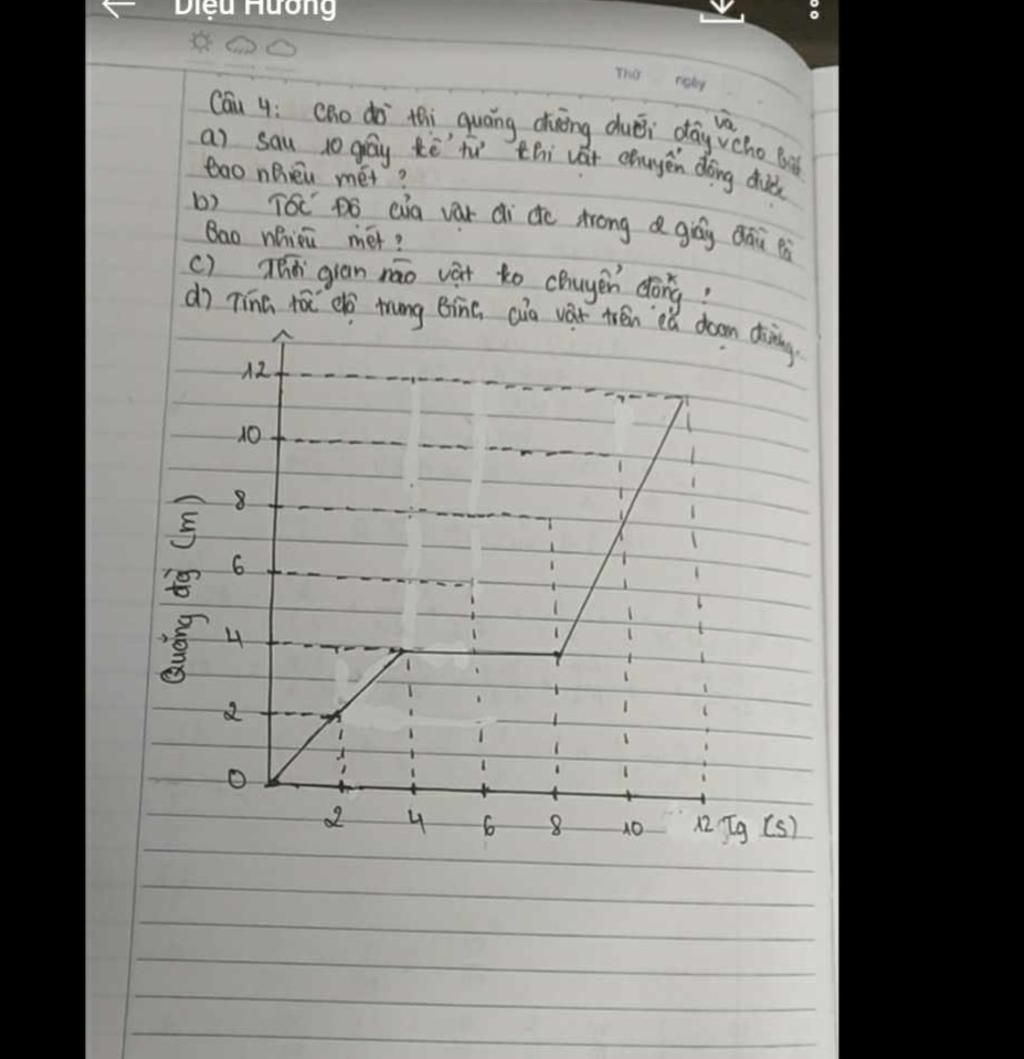 Diệu Hương
Thứ ngày
Câu 4: Cho đồ thi quãng đường dưới đây và cho biết
a) sau 10 giây kể từ khi vật chuyển động được
bao nhiêu mét?
b) Tốc Độ của vật đi đc trong 2 giây đầu là
Bao nhiêu mét?
c) Thời gian nào vật ko chuyển động?
d) Tính tốc độ trung bình của vật trên cả đoạn đường.
12
10
8
6
4
2
0
Quãng đg (m)
2 4 6 8 10 12 Tg (s)